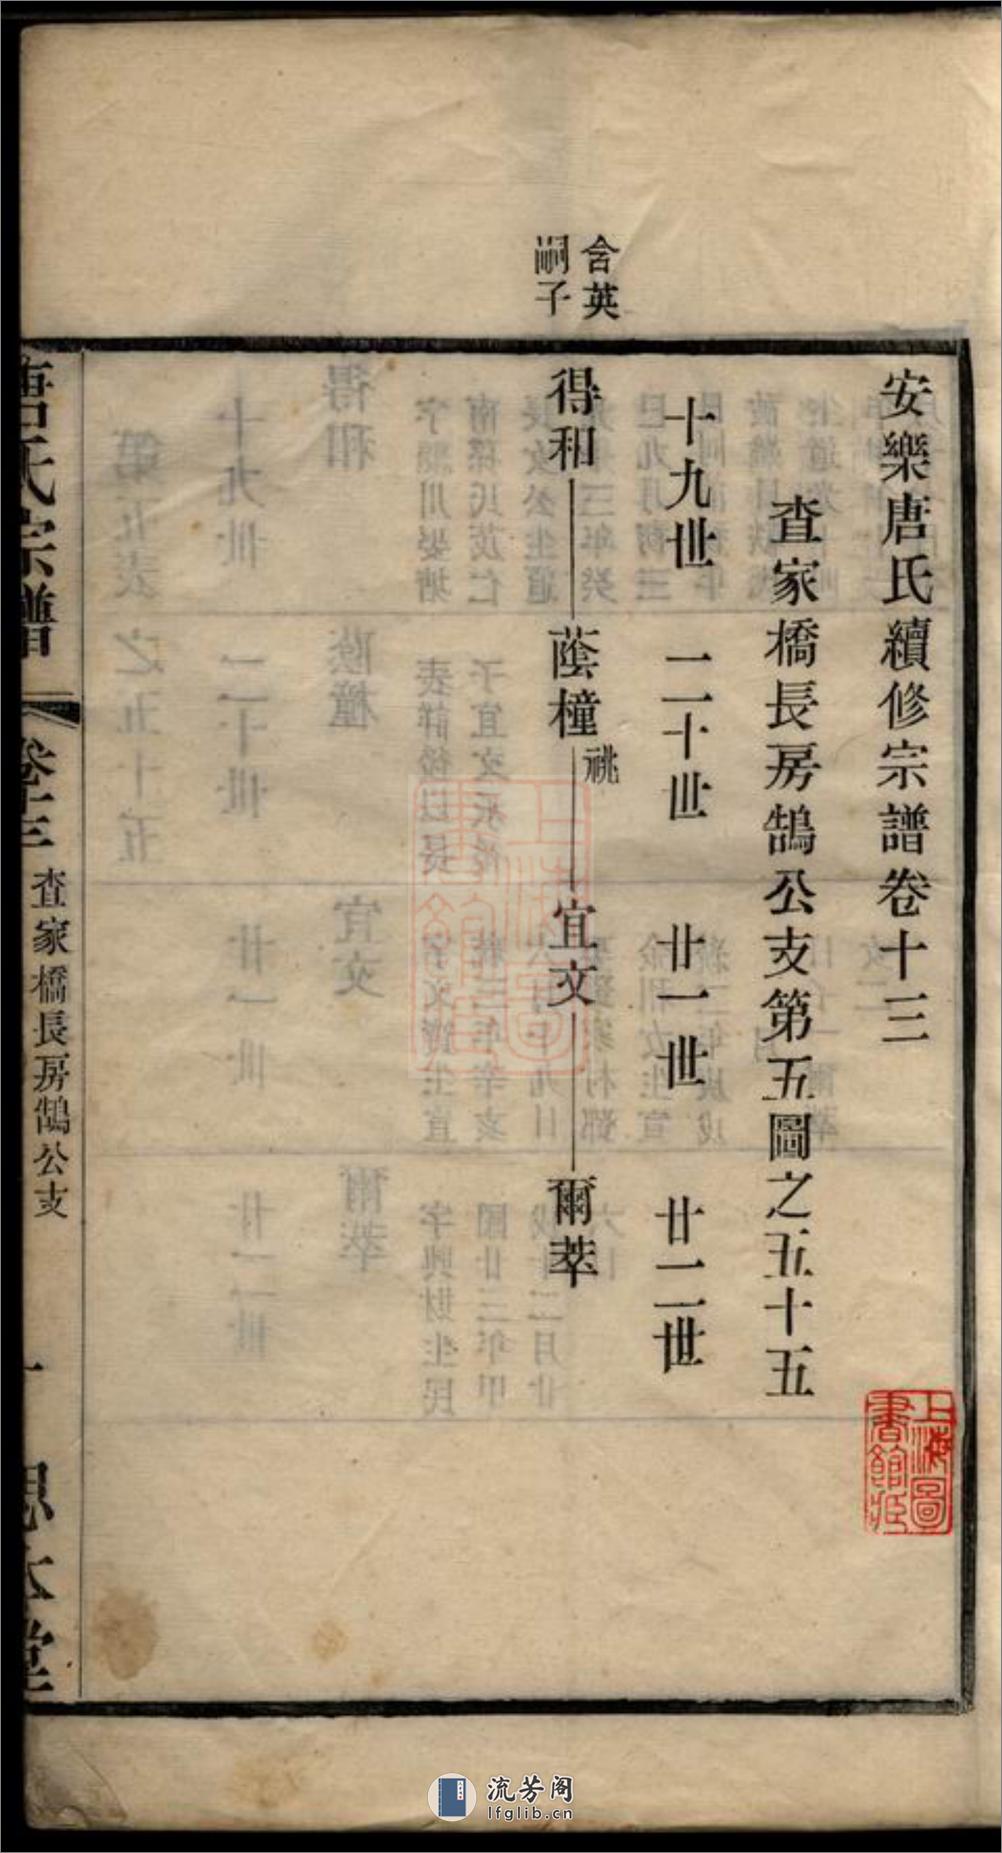 安樂唐氏續修宗譜卷十三
查家橋長房鵠公支第五圖之五十五
十九世
二十世
廿一世
廿二世
含英
嗣子
得和
蔭橦
祧
宜文
爾萃
唐氏宗譜
卷十三
查家橋長房鵠公支
一
思本堂
上海圖書館藏
流芳阁
lfglib.cn